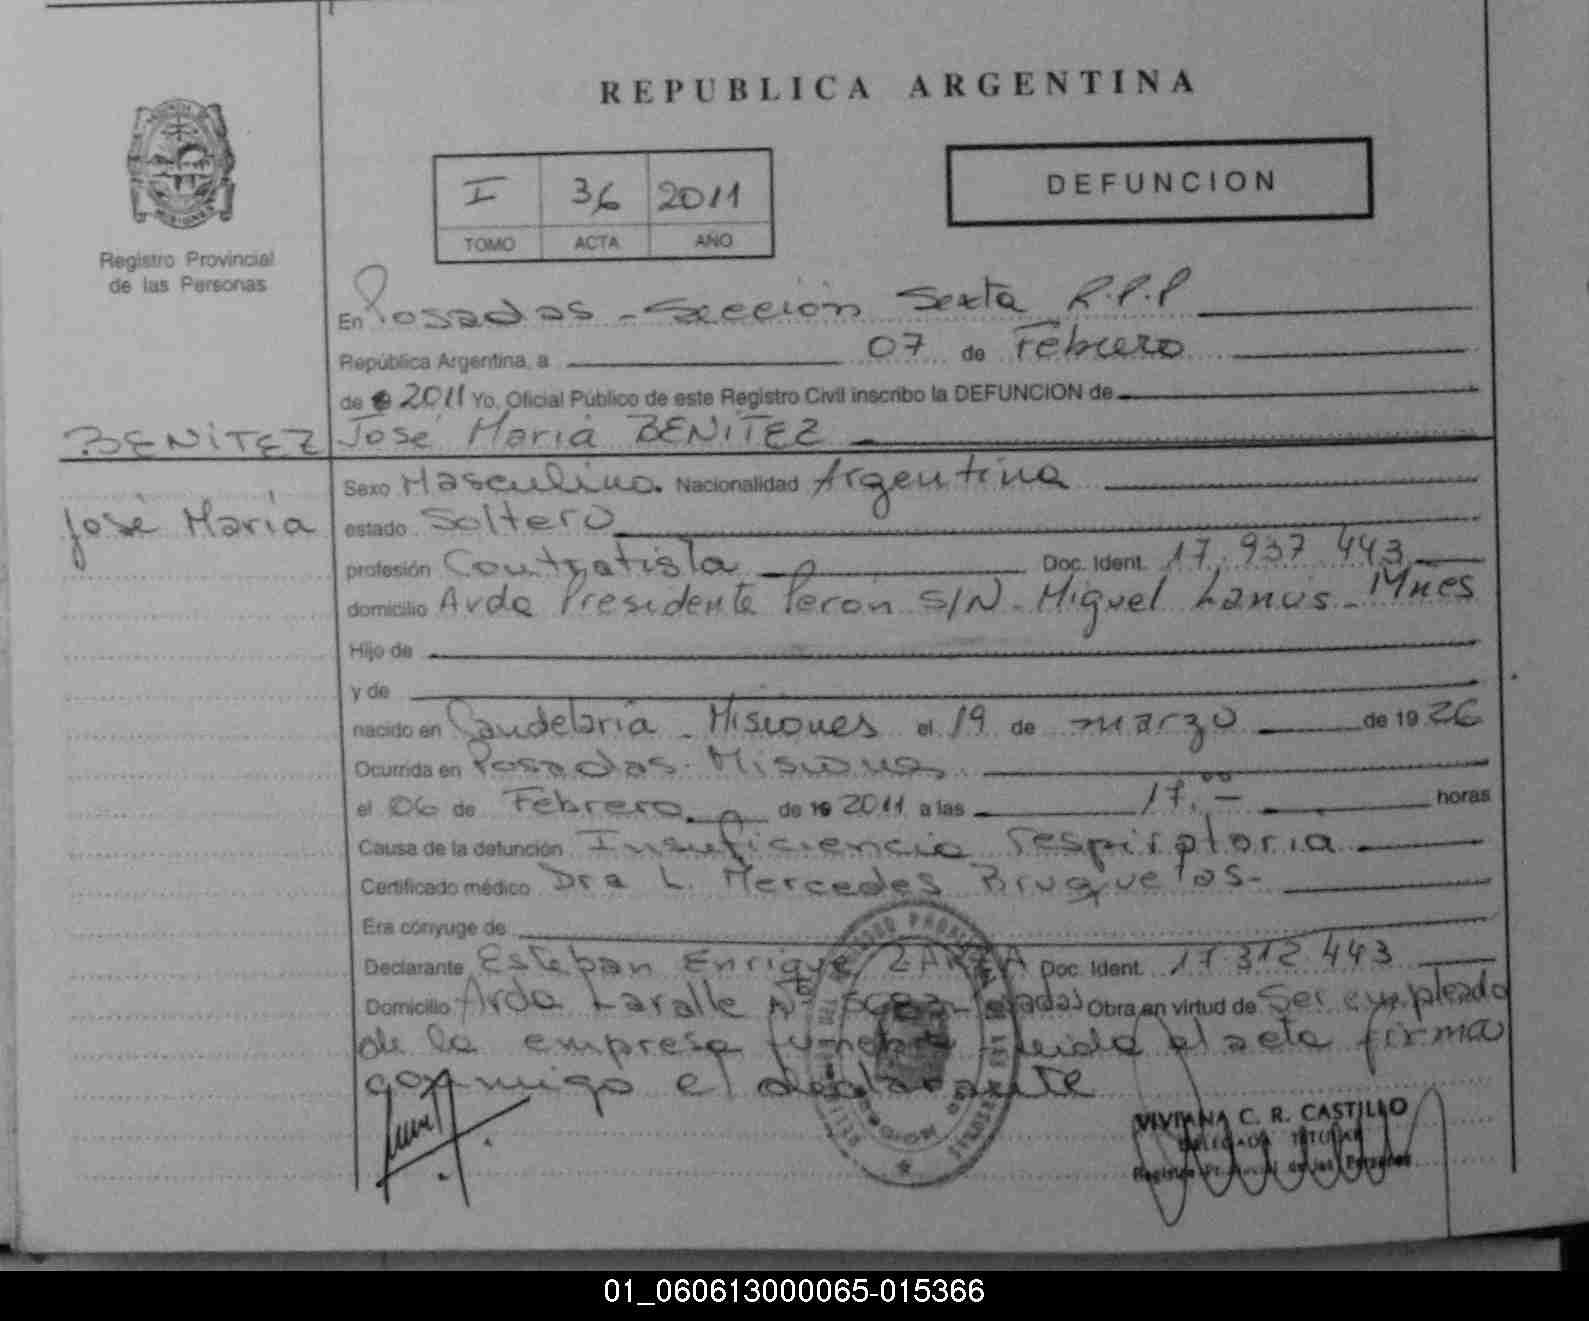 REPUBLICA ARGENTINA
MISIONES
Registro Provincial
de las Personas
I 36 2011
TOMO ACTA AÑO
DEFUNCION
En Posadas - Sección Sexta R.P.P
República Argentina, a 07 de Febrero
de 2011 Yo, Oficial Público de este Registro Civil inscribo la DEFUNCION de
BENITEZ José Maria BENITEZ
José María
Sexo Masculino. Nacionalidad Argentina
estado Soltero
profesión Contratista Doc. Ident. 17.937.443
domicilio Avda Presidente Perón S/N - Miguel Lanús - Mnes
Hijo de
y de
nacido en Candelaria - Misiones el 19 de marzo de 1926
Ocurrida en Posadas - Misiones
el 06 de Febrero de 19 2011 a las 17,00 horas
Causa de la defunción Insuficiencia respiratoria
Certificado médico Dra L. Mercedes Bruquetas-
Era cónyuge de
Declarante Esteban Enrique Doc. Ident. 17.312.443
Domicilio Avda Lavalle Nº Posadas Obra en virtud de Ser empleado
de la empresa fúnebre Leida el acta firma
conmigo el declarante
VIVIANA C. R. CASTILLO
DELEGADA TITULAR
Registro Provincial de las Personas
01_060613000065-015366